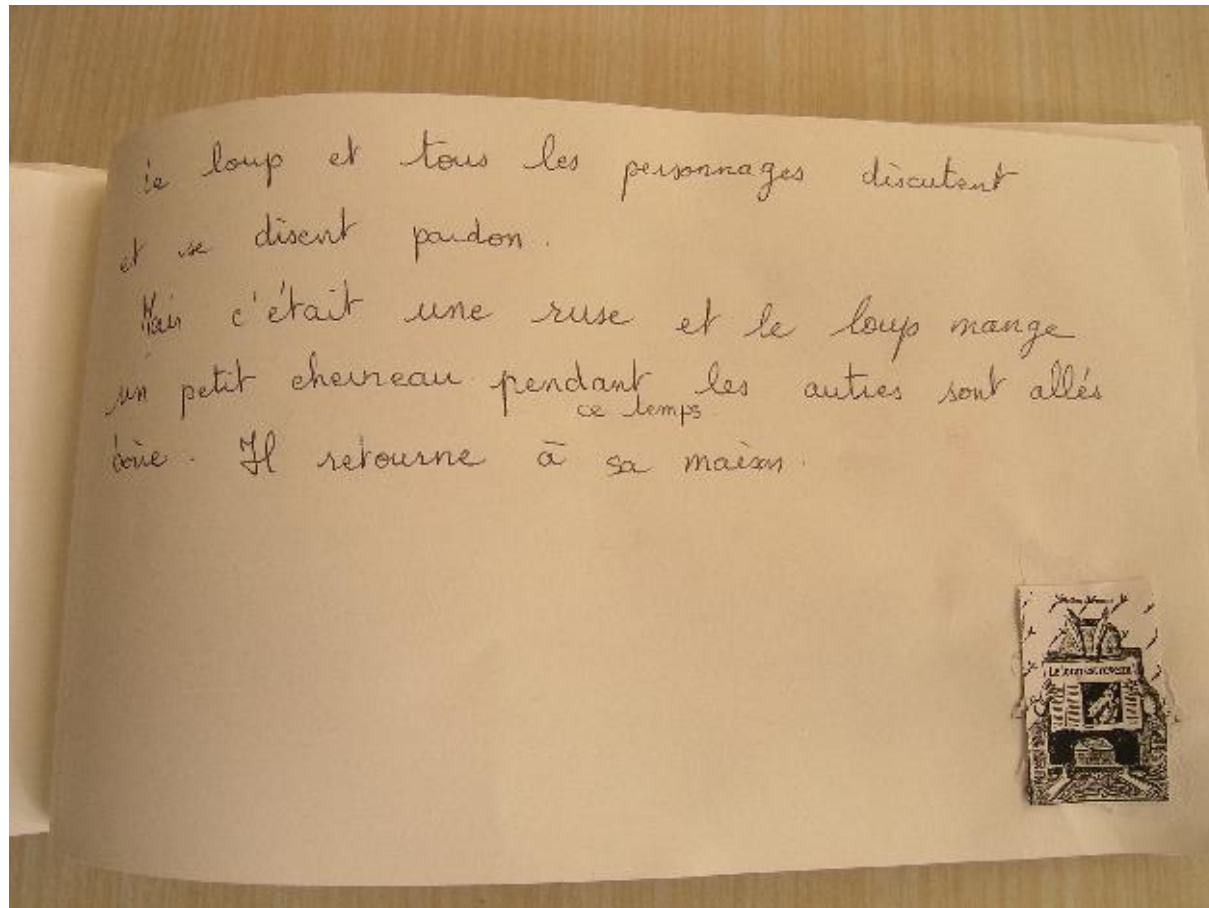 Le loup et tous les personnages discutent
et se disent pardon.
Mais c'était une ruse et le loup mange
un petit chevreau pendant les autres sont allés
ce temps
boire. Il retourne à sa maison.
Le loup est revenu